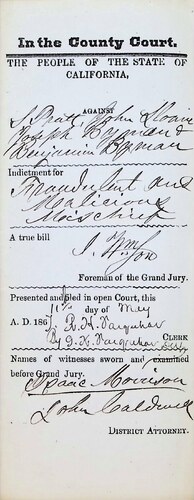 In the County Court.
THE PEOPLE OF THE STATE OF
CALIFORNIA,
AGAINST
S Pratt, John Sloan
Joseph Byman &
Benjamin Byman
Indictment for
Fraudulent and
Malicious
Mischief
A true bill
J.
Foreman of the Grand Jury.
Presented and filed in open Court, this
11th day of May
A. D. 186
R. K. Farquhar
CLERK
By D. K. Farquhar Depty
Names of witnesses sworn and examined
before Grand Jury.
Isaac Morrison
John Caldwell
DISTRICT ATTORNEY.